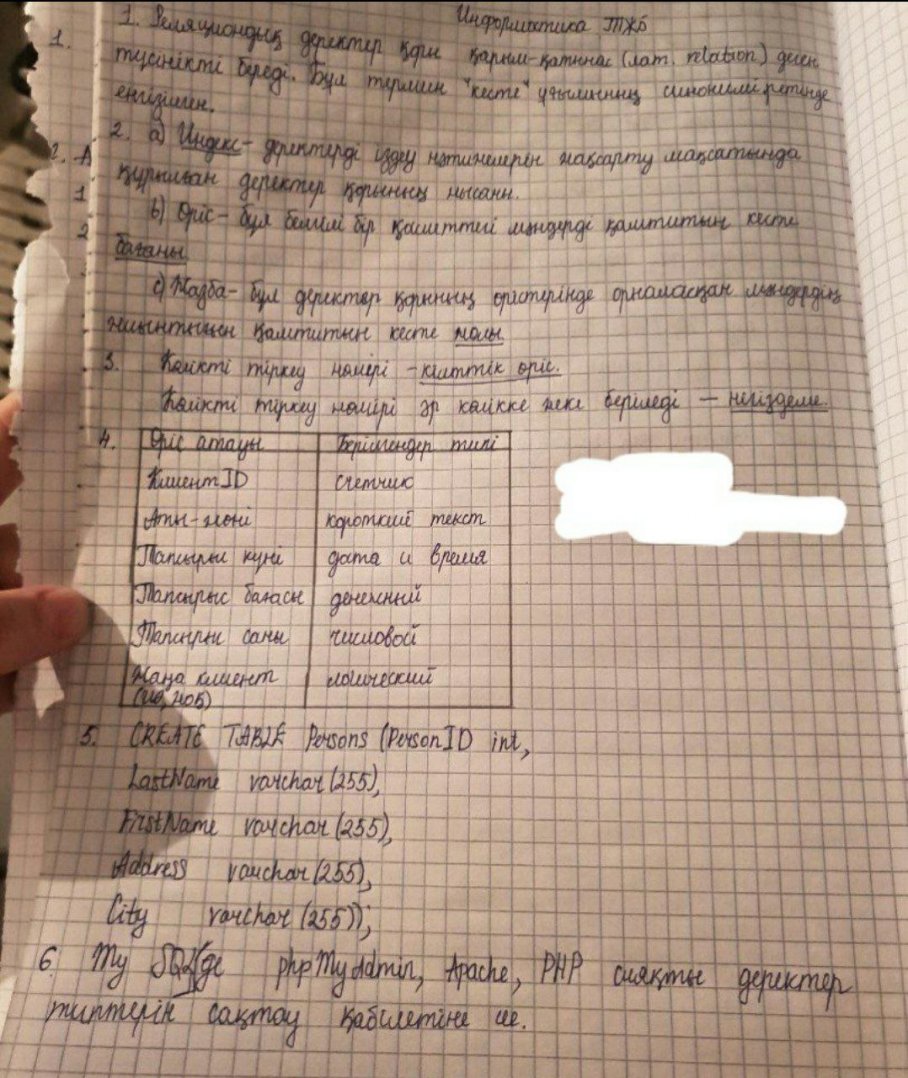 Информатика ТЖБ
1. 1. Реляциондық деректер қоры қарым-қатынас (лат. relation) деген
түсінікті береді. Бұл термин "кесте" ұғымының синонимі ретінде
енгізілген.
2. А 2. a) Индекс - деректерді іздеу нәтижелерін жақсарту мақсатында
1 құрылған деректер қорының нысаны.
2 b) Өріс - бұл белгілі бір қасиеттегі мәндерді қамтитын кесте
бағаны.
c) Жазба - бұл деректер қорының өрістерінде орналасқан мәндердің
жиынтығын қамтитын кесте жолы.
3. Көлікті тіркеу нөмірі - кілттік өріс.
Көлікті тіркеу нөмірі әр көлікке жеке беріледі — негіздеме.
4. Өріс атауы Берілгендер типі
КлиентID счетчик
Аты-жөні короткий текст
Тапсырыс күні дата и время
Тапсырыс бағасы денежный
Тапсырыс саны числовой
Жаңа клиент логический
(иә, жоқ)
5. CREATE TABLE Persons (PersonID int,
LastName varchar (255),
FirstName varchar (255),
Address varchar (255),
City varchar (255));
6. My SQL де phpMyAdmin, Apache, PHP сияқты деректер
типтерін сақтау қабілетіне ие.